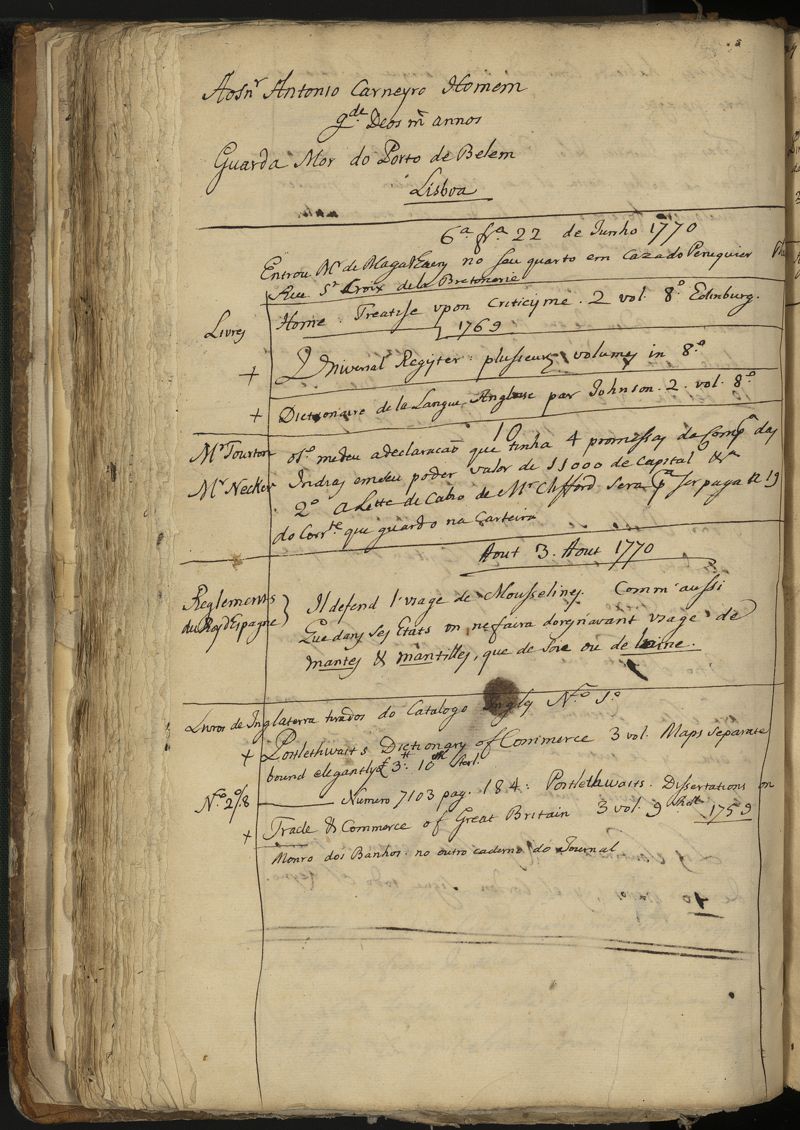 Aosnr Antonio Carneyro Homem
gde Deos ms annos
Guarda Mor do Porto de Belem
Lisboa
6a. fra 22 de Junho 1770
Entrou Mr de Magalhaens no seu quarto em caza do Peruquier
Rue St Croix de la Bretonerie
Livres
Home. Treatise upon Criticisme. 2 vol. 8o. Edinburg.
1769
+ Universal Register: plusseurs volumes in 8o
+ Dictionaire de la Langue Anglaise par Johnson. 2. vol. 8o
Mr Tourton
Mr Necker
1o
osr medeu adeclaração que tinha 4 promessas da Compa das
Indias em seu poder valor de 11000 de Capital &a
2o A Lettre de Cabio de Mr Clifford sera pa ser paga a 19
do Corrte que guardo na Carteira
Aout 3. Aout 1770
Reglements
du Roy d'Espagne
Il defend l'usage de Mousselines. Comm'aussi
Que dans ses Etats on ne faira doresnavant usage de
mantes & mantilles, que de soie ou de laine.
Livros de Inglaterra tirados do Catalogo Ingles No. 1o
+ Postlethwait's Dictionary of Commerce 3 vol. Maps separate
bound elegantly £ 3: 10 Sterl.
No. 2o/.8
Numero 7103 pag. 184: Postlethwaits. Dissertations on
+ Trade & Commerce of Great Britain 3 vol. 9 Sh 1759
Monro dos Banhos: no outro caderno do Journal